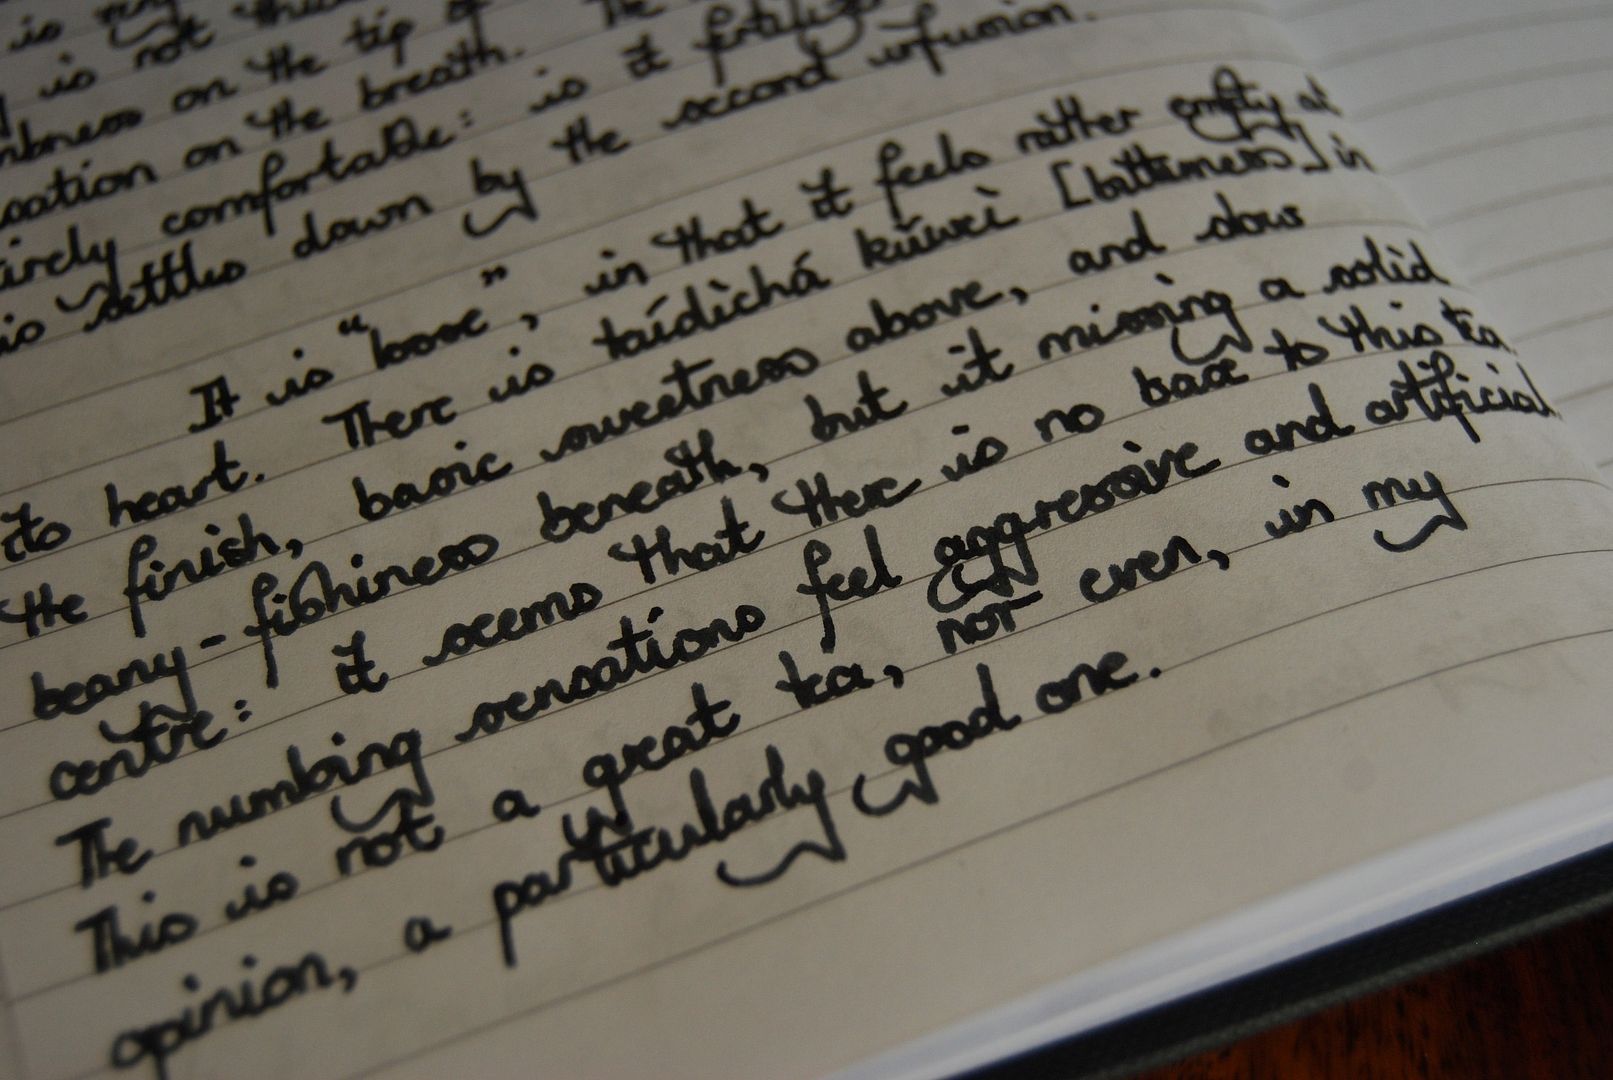 is very
is not
mbness on the tip of
sation on the breath. The
irely comfortable: is it
is settles down by the second infusion.
It is "loose", in that it feels rather empty at
to heart. There is taídìchá kǔwèi [bitterness] in
the finish, basic sweetness above, and slow
beany-fishiness beneath, but it missing a solid
centre: it seems that there is no base to this tea.
The numbing sensations feel aggressive and artificial.
This is not a great tea, not even, in my
opinion, a particularly good one.